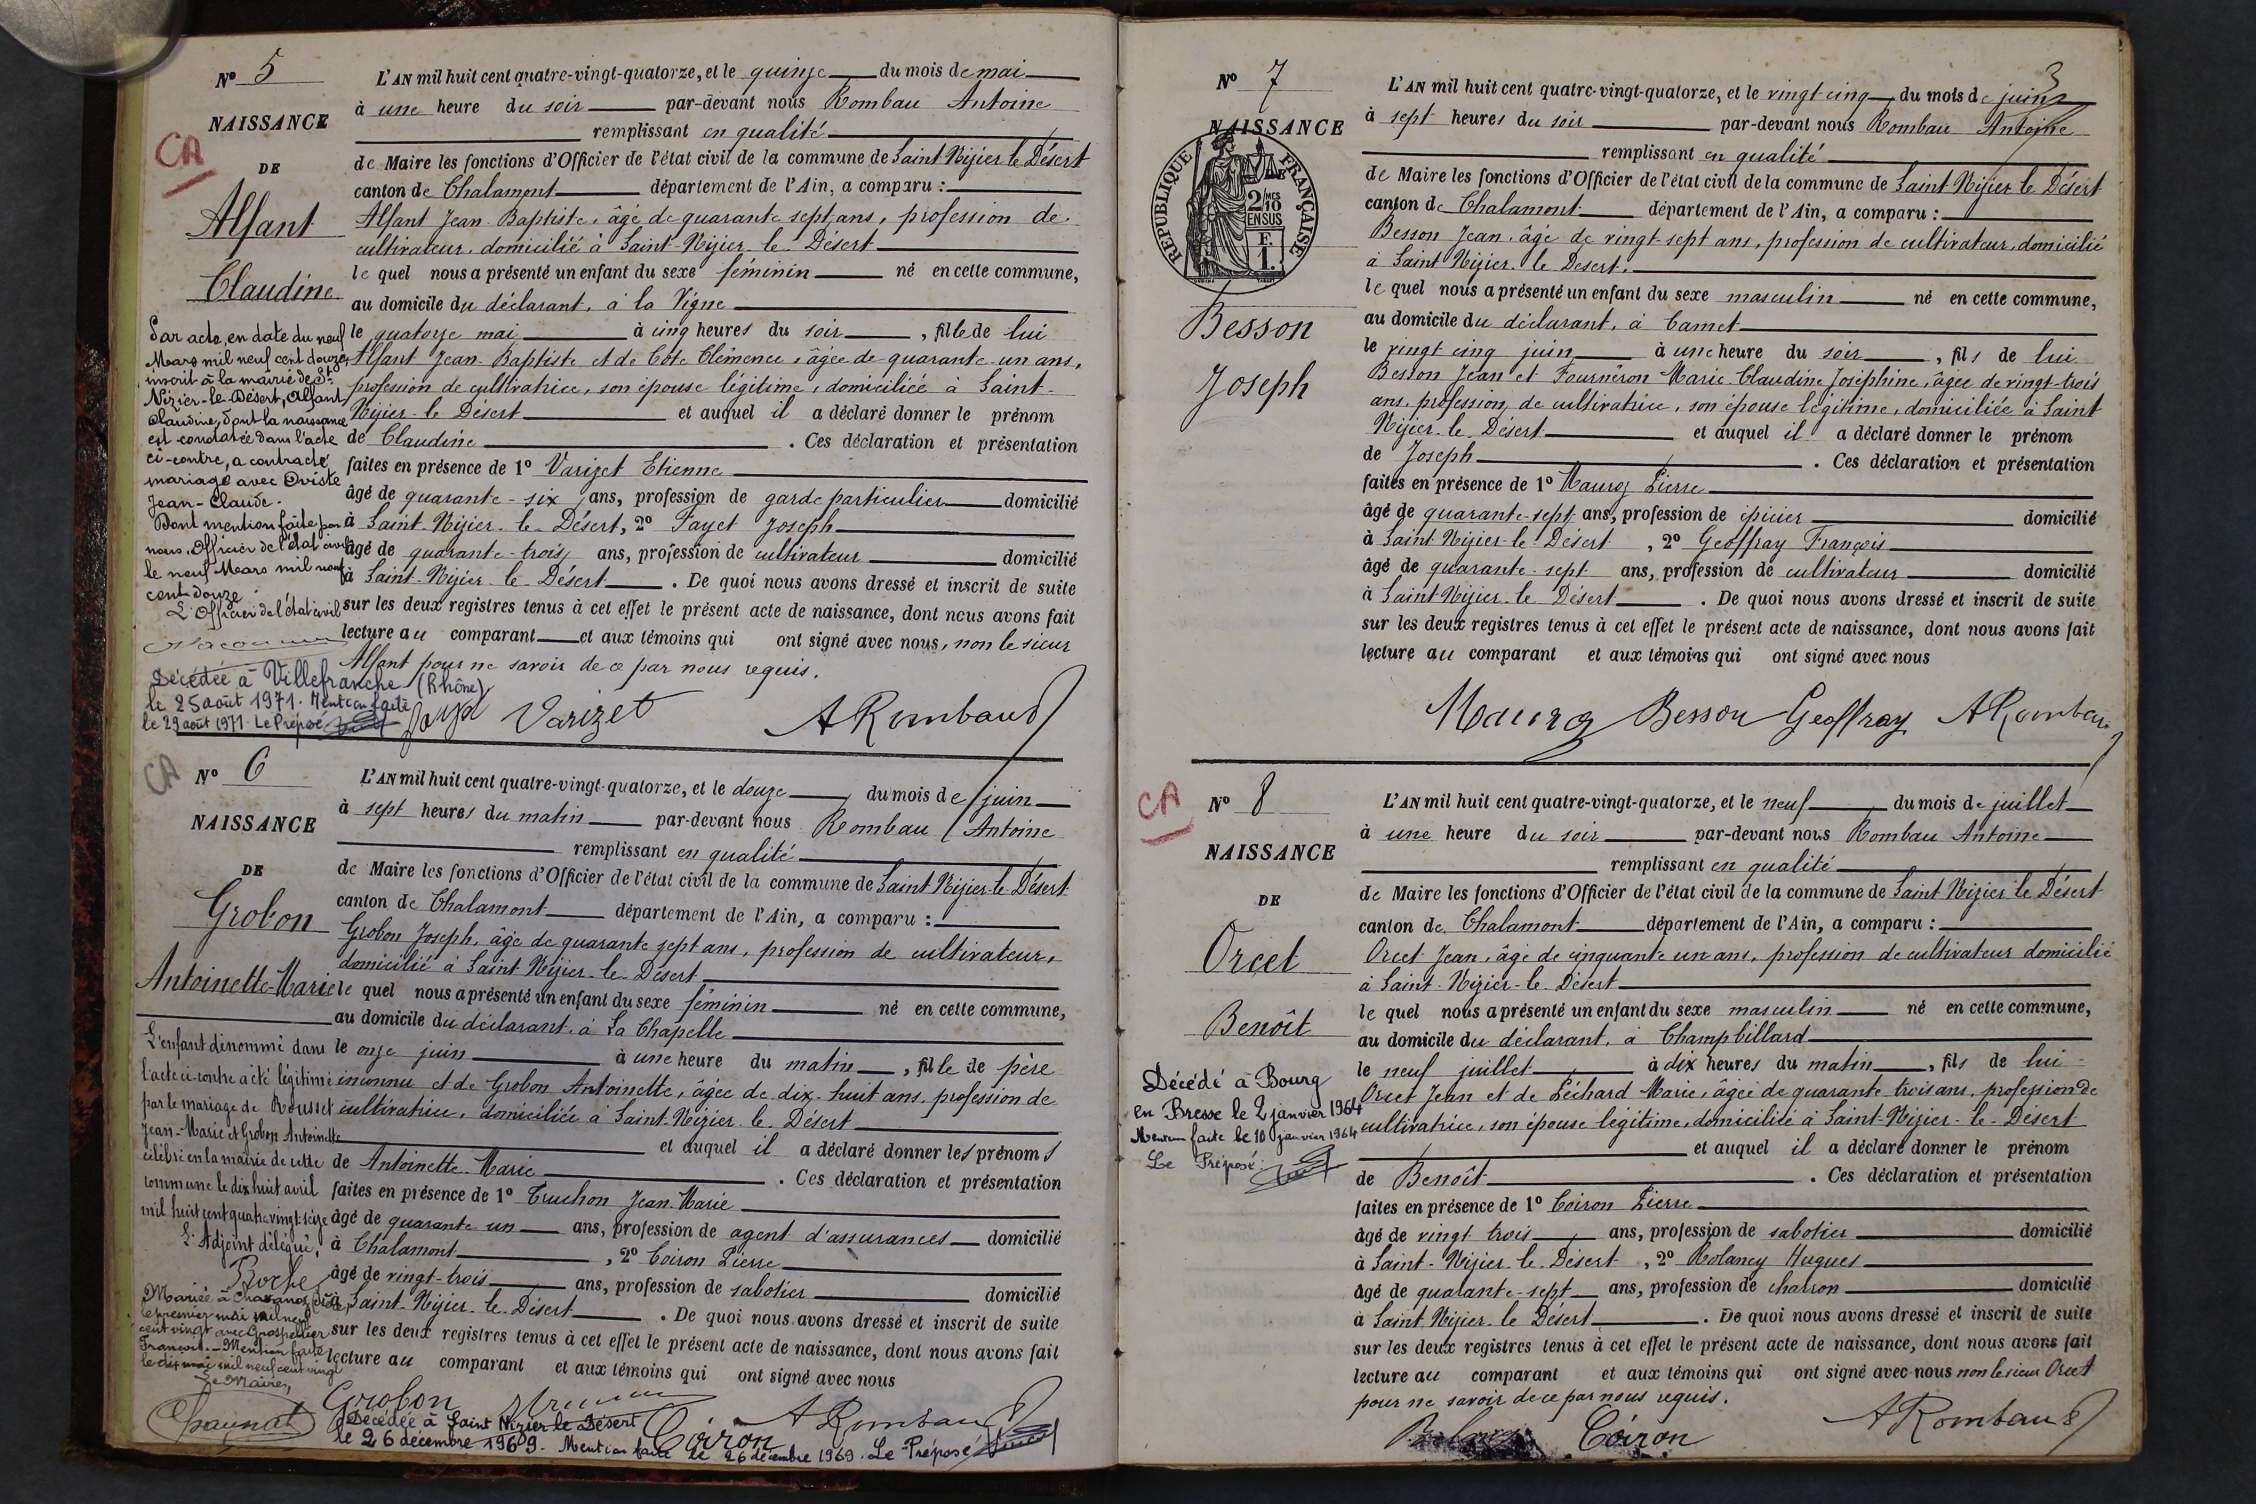 N° 5
NAISSANCE
CA
DE
Alfant
Claudine
L'AN mil huit cent quatre-vingt-quatorze, et le quinze du mois de mai
à une heure du soir par-devant nous Rombau Antoine
remplissant en qualité
de Maire les fonctions d'Officier de l'état civil de la commune de Saint Nizier le Désert
canton de Chalamont département de l'Ain, a comparu :
Alfant Jean-Baptiste, âgé de quarante sept ans, profession de
cultivateur, domicilié à Saint-Nizier-le-Désert
le quel nous a présenté un enfant du sexe féminin né en cette commune,
au domicile du déclarant, à la Vigne
le quatorze mai à cinq heures du soir, fille de lui
Alfant Jean-Baptiste et de Cote Clémence, âgée de quarante-un ans,
profession de cultivatrice, son épouse légitime, domiciliée à Saint-
Nizier-le Désert et auquel il a déclaré donner le prénom
de Claudine. Ces déclaration et présentation
faites en présence de 1° Varizet Etienne
âgé de quarante-six ans, profession de garde particulier domicilié
à Saint-Nizier-le-Désert, 2° Fayet Joseph
âgé de quarante-trois ans, profession de cultivateur domicilié
à Saint-Nizier-le-Désert. De quoi nous avons dressé et inscrit de suite
sur les deux registres tenus à cet effet le présent acte de naissance, dont nous avons fait
lecture au comparant et aux témoins qui ont signé avec nous, non le sieur
Alfant pour ne savoir de ce par nous requis.
Varizet ARombaud
Par acte, en date du neuf
Mars mil neuf cent douze,
inscrit à la mairie de St-
Nizier-le-Désert, Alfant
Claudine, dont la naissance
est constatée dans l'acte
ci-contre, a contracté
mariage avec Oviste
Jean-Claude.
Dont mention faite par
nous, Officier de l'état civil
le neuf Mars mil neuf
cent douze.
L'Officier de l'état civil
Décédée à Villefranche (Rhône)
le 25 août 1971. Mention faite
le 29 août 1971. Le Préposé
CA
N° 6
NAISSANCE
DE
Grobon
Antoinette-Marie
L'AN mil huit cent quatre-vingt-quatorze, et le douze du mois de juin
à sept heures du matin par-devant nous Rombau Antoine
remplissant en qualité
de Maire les fonctions d'Officier de l'état civil de la commune de Saint Nizier-le-Désert
canton de Chalamont département de l'Ain, a comparu :
Grobon Joseph, âgé de quarante sept ans, profession de cultivateur,
domicilié à Saint-Nizier-le-Désert
le quel nous a présenté un enfant du sexe féminin né en cette commune,
au domicile du déclarant, à La Chapelle
le onze juin à une heure du matin, fille de père
inconnu et de Grobon Antoinette, âgée de dix-huit ans, profession de
cultivatrice, domiciliée à Saint-Nizier-le-Désert
et auquel il a déclaré donner les prénoms
de Antoinette-Marie. Ces déclaration et présentation
faites en présence de 1° Truchon Jean-Marie
âgé de quarante un ans, profession de agent d'assurances domicilié
à Chalamont, 2° Coiron Pierre
âgé de vingt-trois ans, profession de sabotier domicilié
à Saint-Nizier-le-Désert. De quoi nous avons dressé et inscrit de suite
sur les deux registres tenus à cet effet le présent acte de naissance, dont nous avons fait
lecture au comparant et aux témoins qui ont signé avec nous
Grobon Coiron ARombaud
L'enfant dénommé dans
l'acte ci-contre a été légitimé
par le mariage de Rousset
Jean-Marie et Grobon Antoinette
célébré en la mairie de cette
commune le dix huit avril
mil huit cent quatre vingt-seize
L'Adjoint délégué,
Roche
Mariée à
le premier mai mil neuf
cent vingt avec Grospellier
François. - Mention faite
le dix mai mil neuf cent vingt
Le Maire,
Décédée à Saint Nizier le Désert
le 26 décembre 1969. Mention faite le 26 décembre 1969. Le Préposé
3
N° 7
NAISSANCE
DE
RÉPUBLIQUE FRANÇAISE
2/10MES
EN SUS
F.
1.
Besson
Joseph
L'AN mil huit cent quatre-vingt-quatorze, et le vingt cinq du mois de juin
à sept heures du soir par-devant nous Rombau Antoine
remplissant en qualité
de Maire les fonctions d'Officier de l'état civil de la commune de Saint Nizier le Désert
canton de Chalamont département de l'Ain, a comparu :
Besson Jean, âgé de vingt-sept ans, profession de cultivateur, domicilié
à Saint Nizier-le Désert,
le quel nous a présenté un enfant du sexe masculin né en cette commune,
au domicile du déclarant, à Camet
le vingt cinq juin à une heure du soir, fils de lui
Besson Jean et Fournéron Marie-Claudine Joséphine, âgée de vingt-trois
ans, profession de cultivatrice, son épouse légitime, domiciliée à Saint
Nizier-le-Désert et auquel il a déclaré donner le prénom
de Joseph. Ces déclaration et présentation
faites en présence de 1° Mauroz Pierre
âgé de quarante-sept ans, profession de épicier domicilié
à Saint-Nizier-le-Désert, 2° Geoffray François
âgé de quarante-sept ans, profession de cultivateur domicilié
à Saint Nizier-le Désert. De quoi nous avons dressé et inscrit de suite
sur les deux registres tenus à cet effet le présent acte de naissance, dont nous avons fait
lecture au comparant et aux témoins qui ont signé avec nous
Mauroz Besson Geoffray ARombau
CA
N° 8
NAISSANCE
DE
Orcet
Benoît
L'AN mil huit cent quatre-vingt-quatorze, et le neuf du mois de juillet
à une heure du soir par-devant nous Rombau Antoine
remplissant en qualité
de Maire les fonctions d'Officier de l'état civil de la commune de Saint Nizier le Désert
canton de Chalamont département de l'Ain, a comparu :
Orcet Jean, âgé de cinquante un ans, profession de cultivateur domicilié
à Saint-Nizier-le-Désert
le quel nous a présenté un enfant du sexe masculin né en cette commune,
au domicile du déclarant, à Champbillard
le neuf juillet à dix heures du matin, fils de lui
Orcet Jean et de Péchard Marie, âgée de quarante-trois ans, profession de
cultivatrice, son épouse légitime, domiciliée à Saint-Nizier-le-Désert
et auquel il a déclaré donner le prénom
de Benoît. Ces déclaration et présentation
faites en présence de 1° Coiron Pierre
âgé de vingt trois ans, profession de sabotier domicilié
à Saint-Nizier-le-Désert, 2° Rolancy Hugues
âgé de quarante-sept ans, profession de charron domicilié
à Saint Nizier-le Désert. De quoi nous avons dressé et inscrit de suite
sur les deux registres tenus à cet effet le présent acte de naissance, dont nous avons fait
lecture au comparant et aux témoins qui ont signé avec nous non le sieur Orcet
pour ne savoir de ce par nous requis.
Coiron ARombaud
Décédé à Bourg
en Bresse le 2 janvier 1964
Mention faite le 10 janvier 1964
Le Préposé